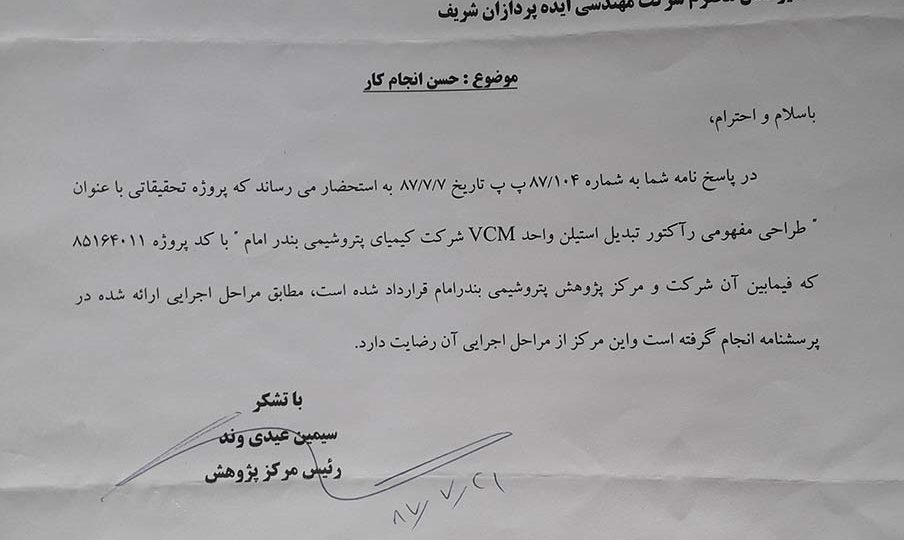 محترم شرکت مهندسی ایده پردازان شریف
موضوع : حسن انجام کار
باسلام و احترام،
در پاسخ نامه شما به شماره ۸۷/۱۰۴ پ پ تاریخ ۸۷/۷/۷ به استحضار می رساند که پروژه تحقیقاتی با عنوان
" طراحی مفهومی رآکتور تبدیل استیلن واحد VCM شرکت کیمیای پتروشیمی بندر امام " با کد پروژه ۸۵۱۶۴۰۱۱
که فیمابین آن شرکت و مرکز پژوهش پتروشیمی بندرامام قرارداد شده است، مطابق مراحل اجرایی ارائه شده در
پرسشنامه انجام گرفته است واین مرکز از مراحل اجرایی آن رضایت دارد.
با تشکر
سیمین عیدی وند
رئیس مرکز پژوهش
۸۷/۷/۲۱